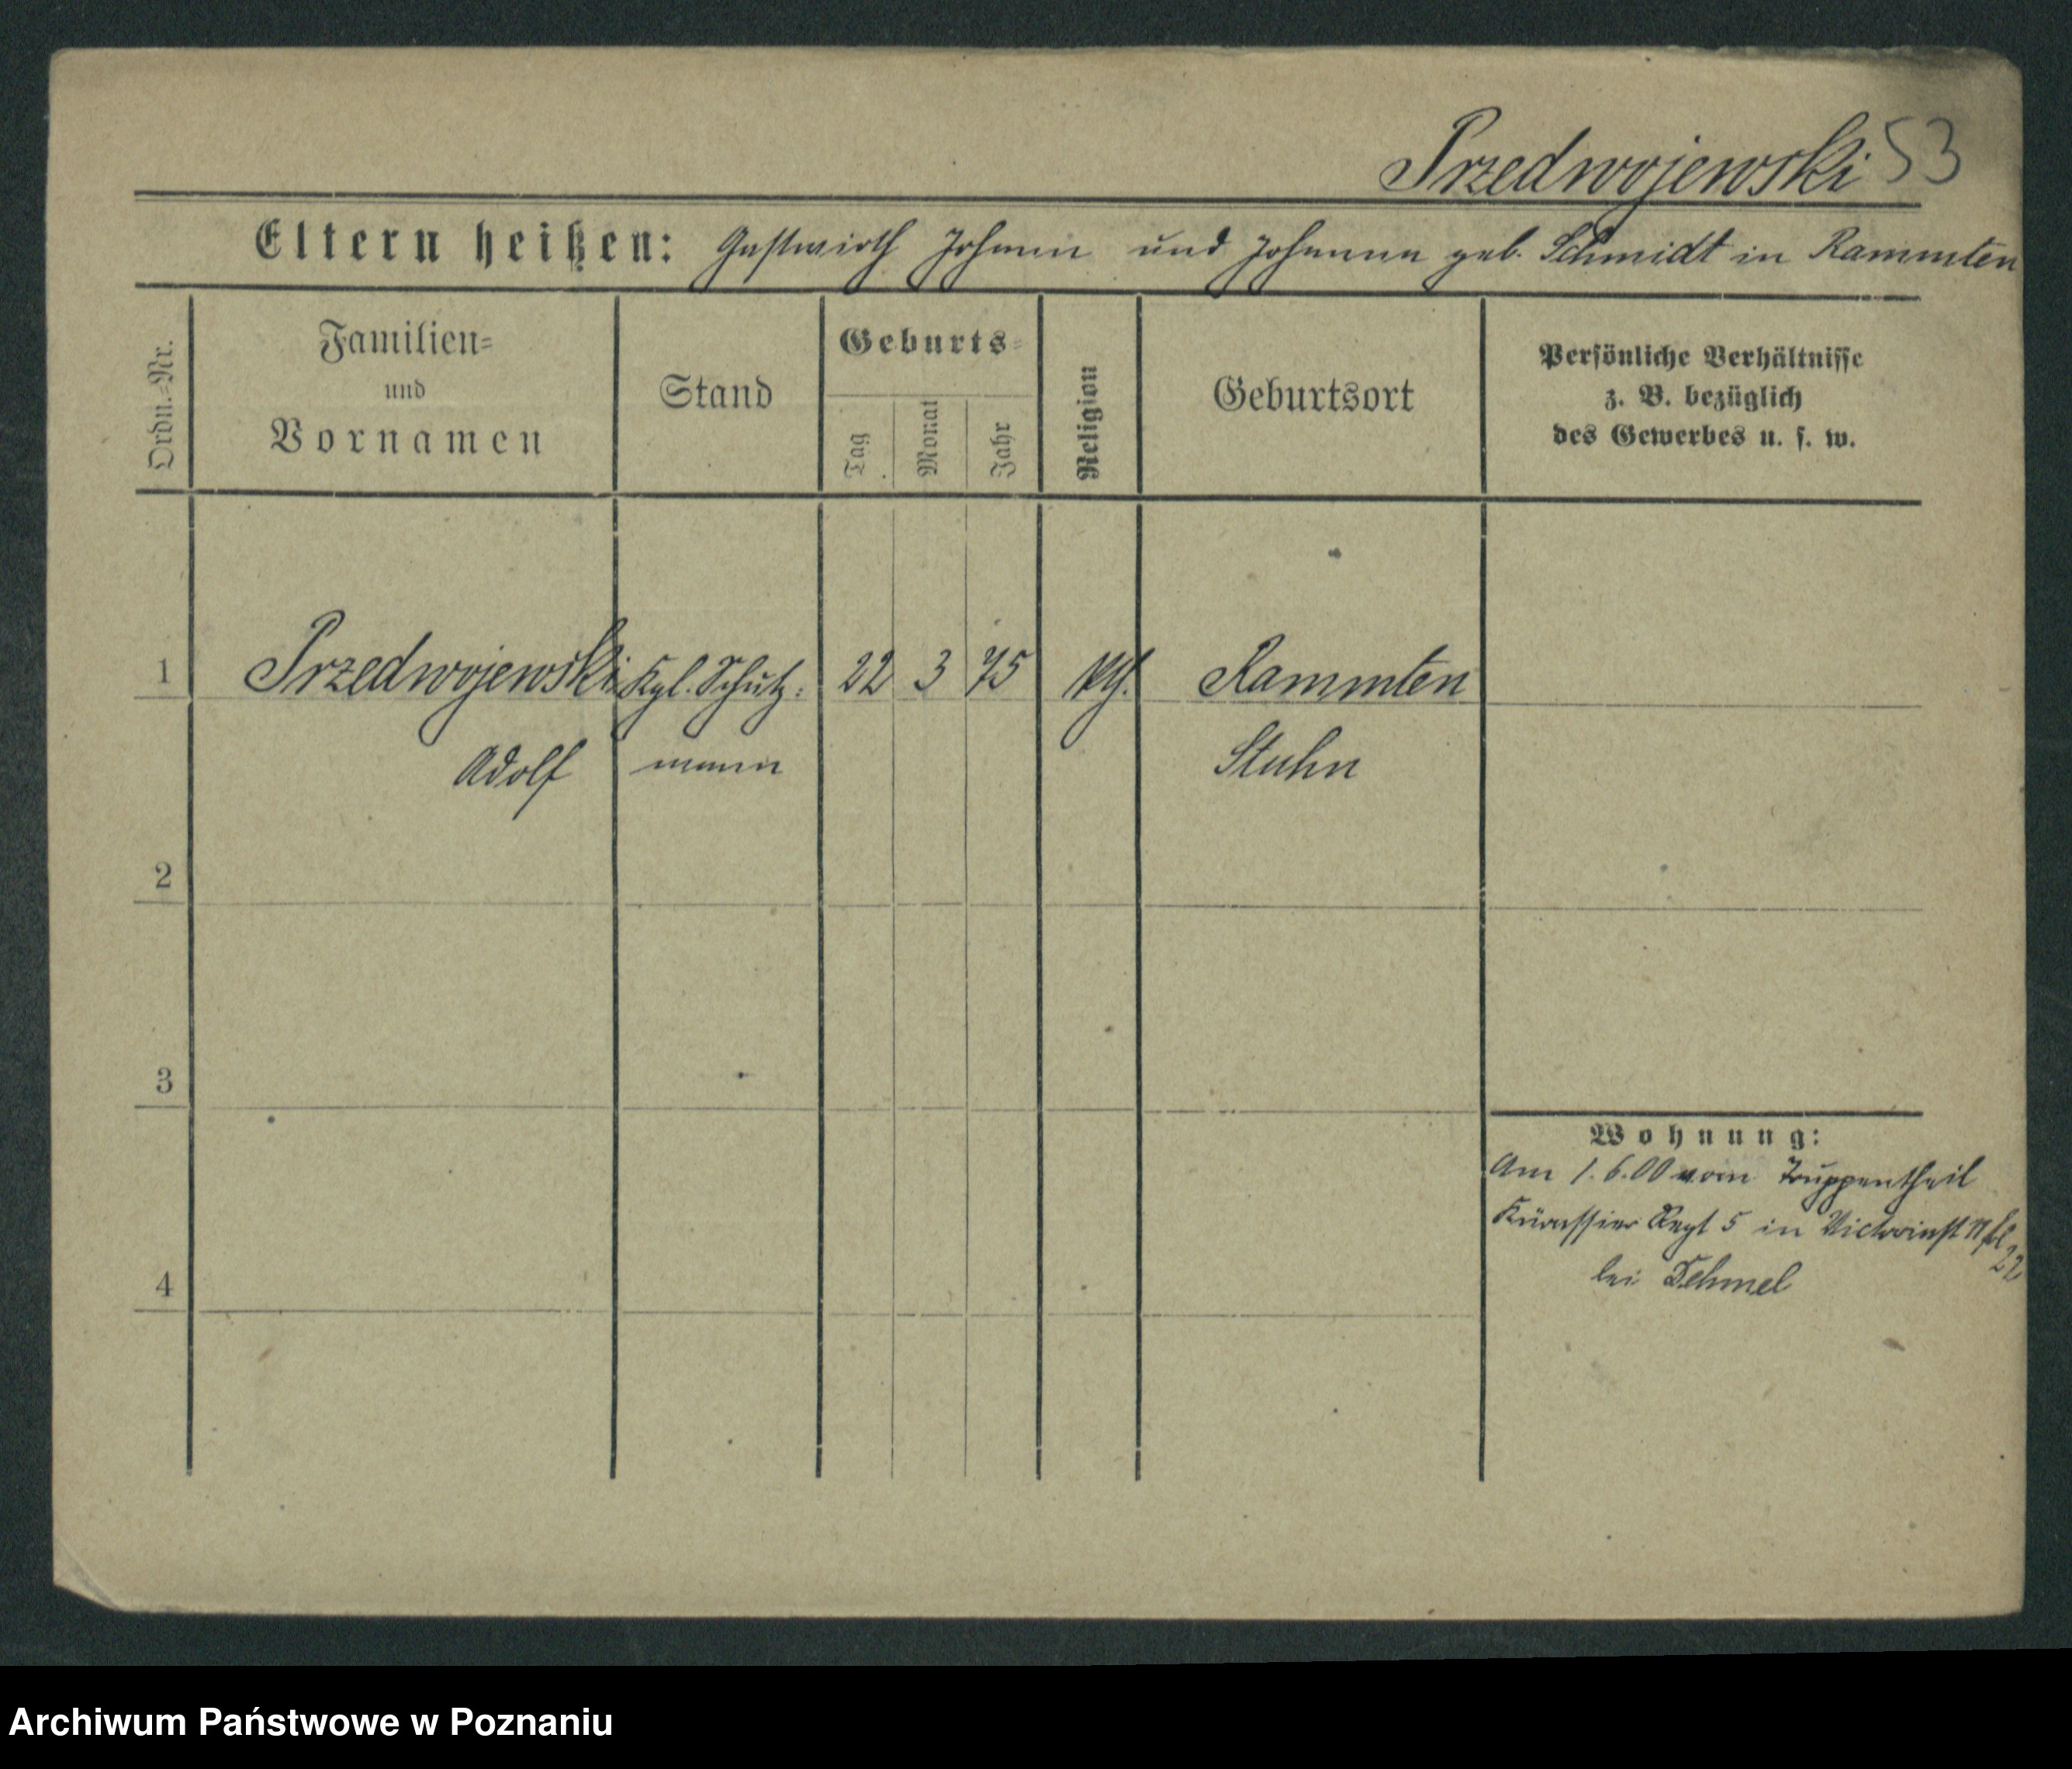 Przedwojewski 53
Eltern heißen: Gastwirth Johann und Johanna geb. Schmidt in Rammten
Ordn.-Nr.
Familien-
und
Vornamen
Stand
Geburts-
Tag
Monat
Jahr
Religion
Geburtsort
Persönliche Verhältnisse
z. B. bezüglich
des Gewerbes u. s. w.
1 Przedwojewski Kgl. Schutz- 22 3 75 kth. Rammten
Adolf mann Stuhm
2
3
4
Wohnung:
Am 1.6.00 vom Truppentheil
Kürassier Regt 5 in
22
bei Dehmel
Archiwum Państwowe w Poznaniu